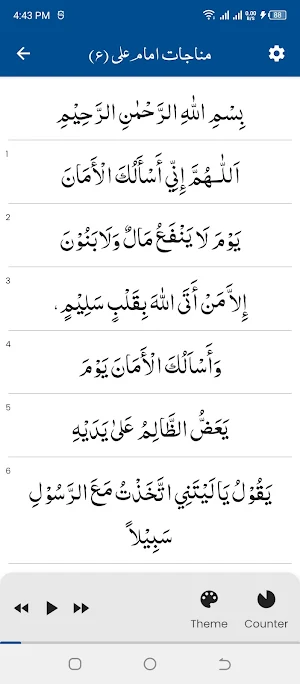 4:43 PM 0.00 KB/s 88
مناجات امام علی (۶)
بِسْمِ اللهِ الرَّحْمٰنِ الرَّحِيْمِ
1
اَللّٰـهُمَّ إِنِّي أَسْأَلُكَ الْأَمَانَ
2
يَوْمَ لَا يَنْفَعُ مَالٌ وَلَابَنُوْنَ
3
إِلاَّ مَنْ أَتَى اللهَ بِقَلْبٍ سَلِيْمٍ،
4
وَأَسْاَلُكَ الْأَمَانَ يَوْمَ
5
يَعَضُّ الظَّالِمُ عَلىٰ يَدَيْهِ
6
يَقُوْلُ يَا لَيْتَنِي اتَّخَذْتُ مَعَ الرَّسُوْلِ
سَبِيْلاً
Theme Counter